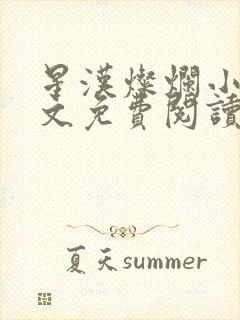 星漢燦爛小
文免費閱讀
夏天summer